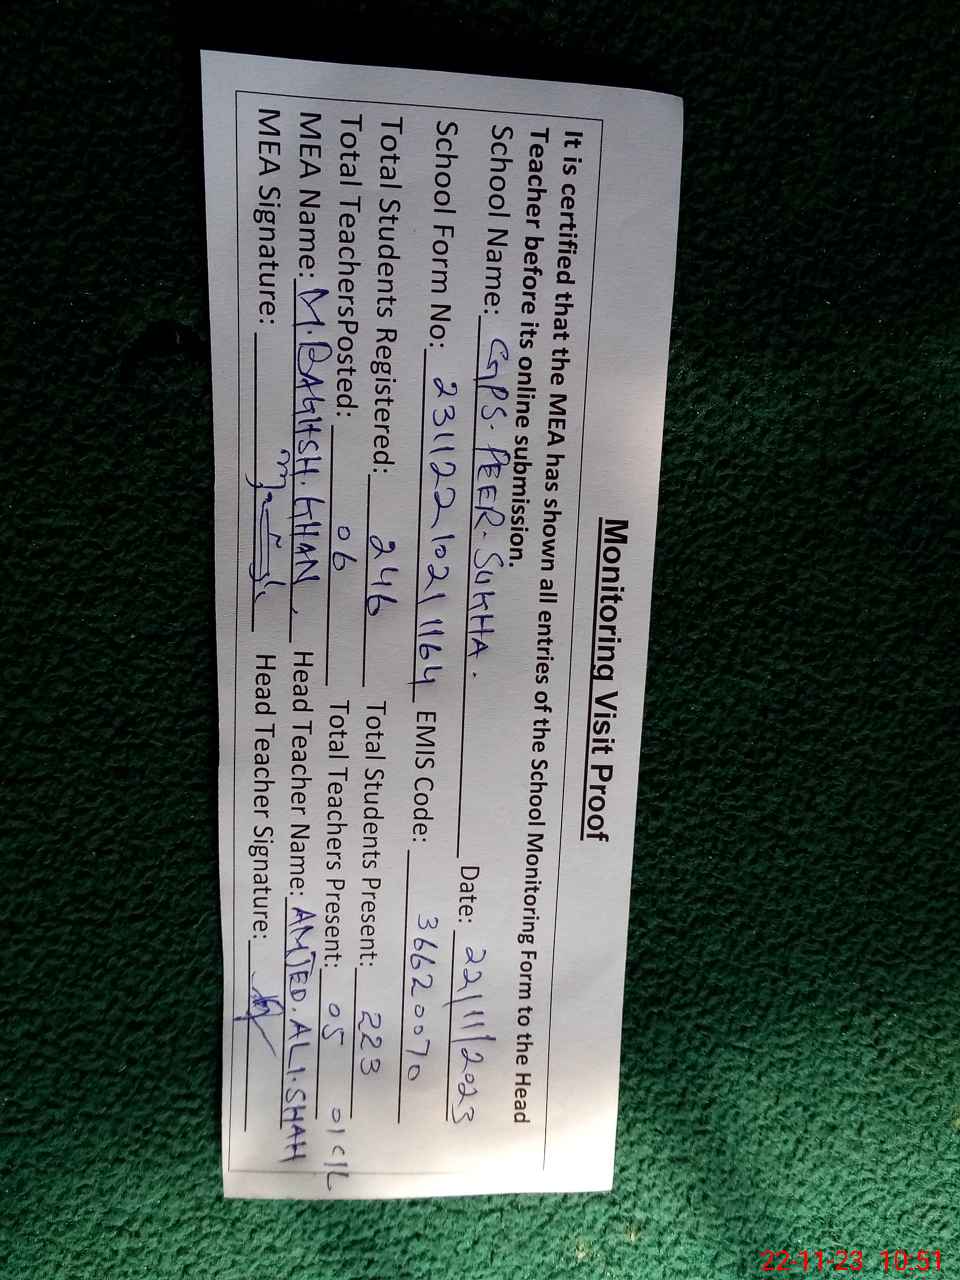 Monitoring Visit Proof
It is certified that the MEA has shown all entries of the School Monitoring Form to the Head
Teacher before its online submission.
School Name: GPS. PEER. SUKHA. Date: 22/11/2023
School Form No: 231122102 11164 EMIS Code: 36620070
Total Students Registered: 246 Total Students Present: 223
Total TeachersPosted: 06 Total Teachers Present: 05 01 C/L
MEA Name: M. BAKHSH. KHAN. Head Teacher Name: AMJED. ALI. SHAH
MEA Signature: Head Teacher Signature:
22-11-23 10:51